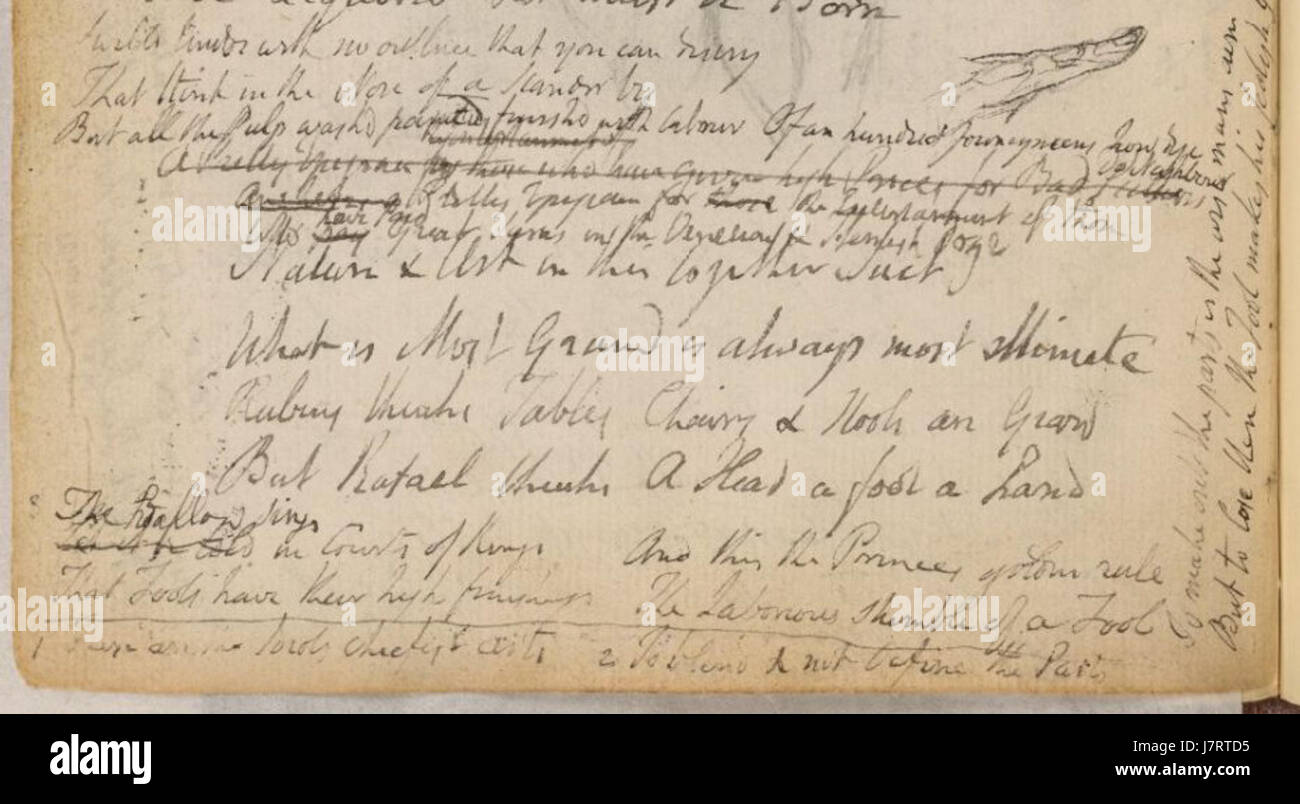 Swelld limbs with no outline that you can descry
That Stink in the Nose of a Stander by
But all the Pulp washd painted finishd with labour Of an hundred Journeymens how dye
do Neighbour
A Pretty Epigram for those who have given high Prices for Bad
Pretty Epigram for those the Entertainment of those
have Paid
Who Great Sums in the Venetian & Flemish Ooze
Nature & Art in this together Suit
What is Most Grand is always most Minute
Rubens thinks Tables Chairs & Stools are Grand
But Rafael thinks A Head a foot a hand
3 The Swallow sings
in Courts of Kings
That Fools have their high finishings
And this the Princes golden rule
The Laborious stumble of a Fool
1 These are the Idiots chiefest arts
2 To blend & not define the Parts
To make out the parts is the wise mans aim
But to lose them the Fool makes his foolish
alamy
Image ID: J7RTD5
www.alamy.com